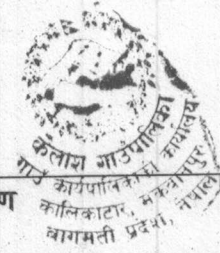 कैलाश गाउँपालिका
गाउँ कार्यपालिकाको कार्यालय
कालिकाटार, मकवानपुर
बागमती प्रदेश, नेपाल
ण